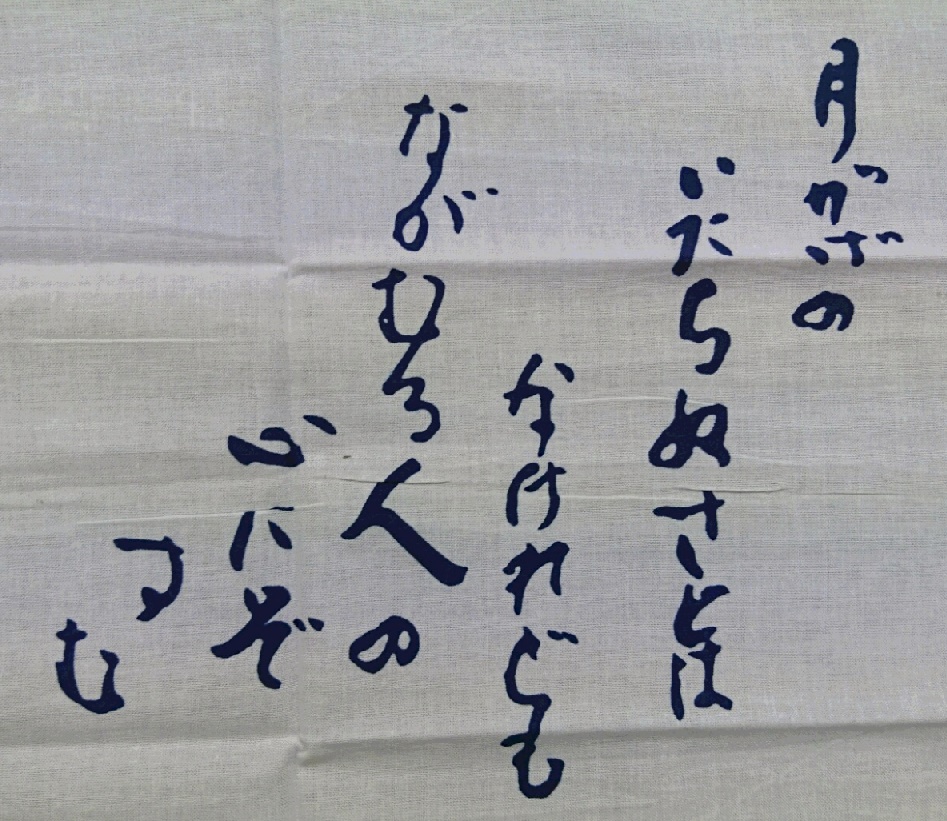 月かげの
いたらぬさとは
なけれども
ながむる人の
心にぞ
すむ